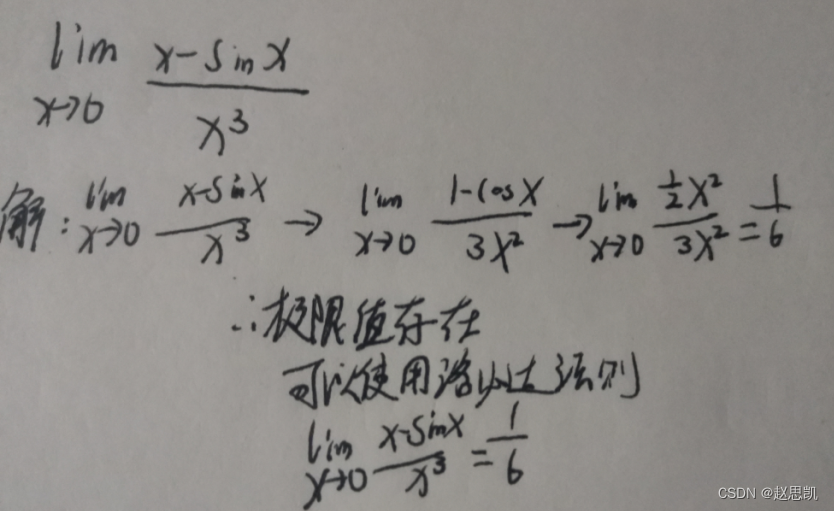 lim x→0 (x-sinx)/x³
解: lim x→0 (x-sinx)/x³ → lim x→0 (1-cosx)/3x² → lim x→0 (½x²)/3x² = 1/6
∴极限值存在
可以使用洛必达法则
lim x→0 (x-sinx)/x³ = 1/6
CSDN @赵思凯